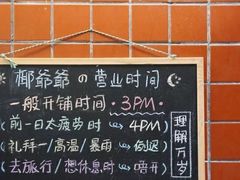 椰爷爷の营业时间
一般开铺时间·3PM·
(前一日太疲劳时 → 4PM)
(礼拜一/高温/暴雨 → 倒退)
(去旅行/想休息时 → 唔开)
理解万岁